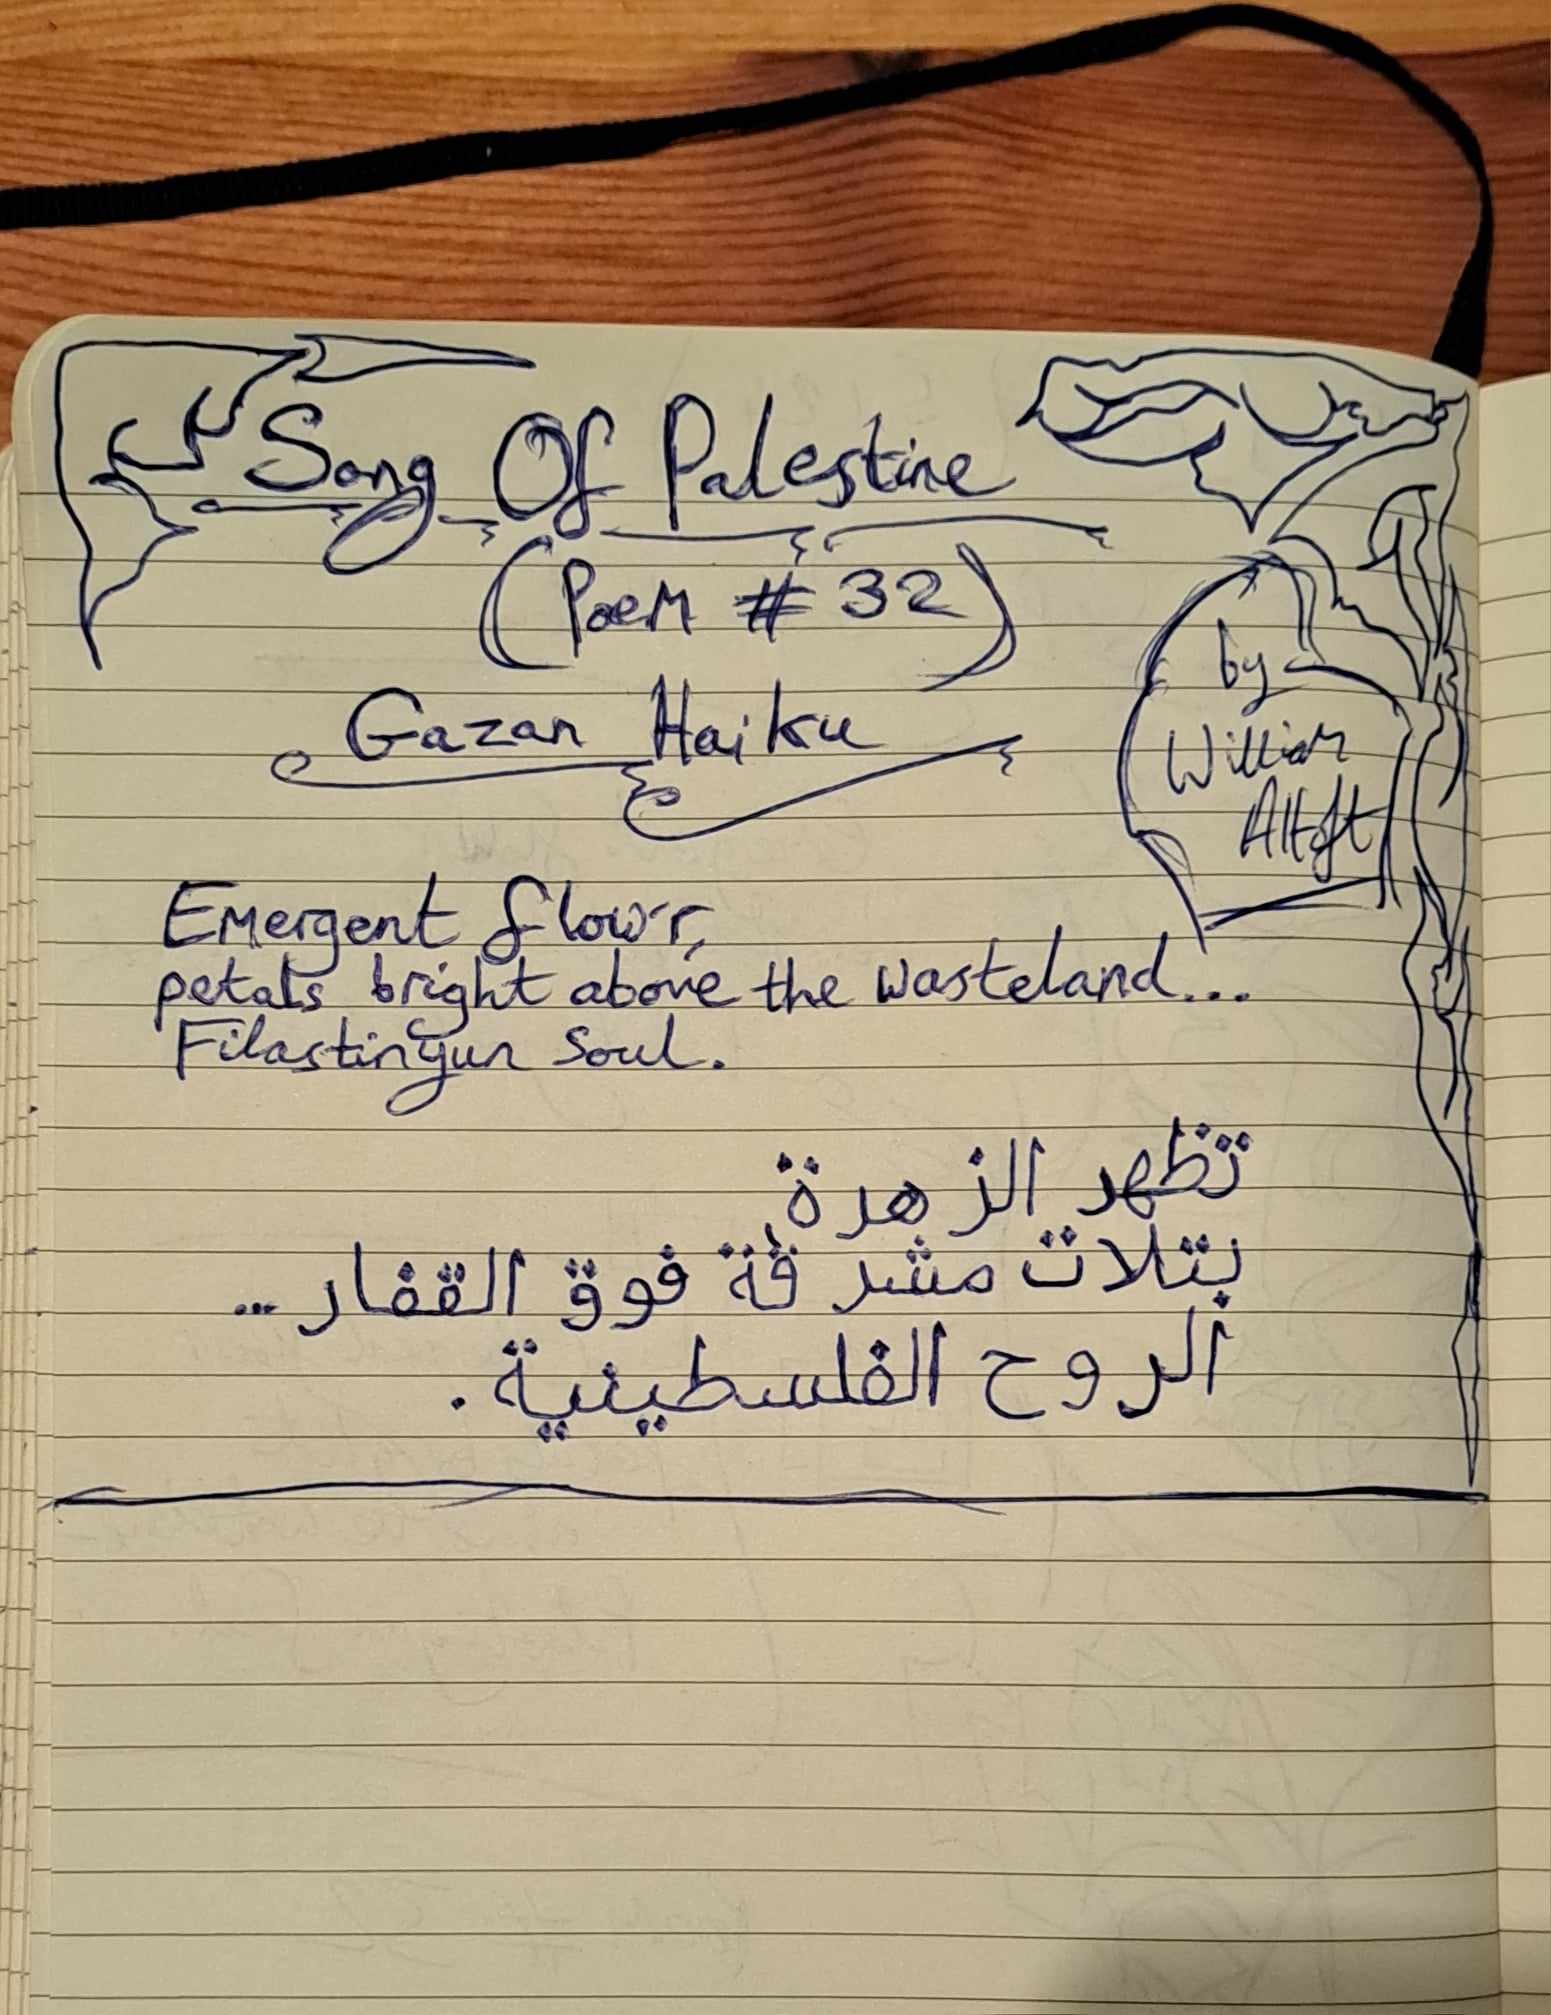 Song Of Palestine
(Poem # 32)
Gazan Haiku
by
William
Altoft
Emergent flow'r,
petals bright above the wasteland...
Filastinyun soul.
تظهر الزهرة
بتلات مشرقة فوق القفار...
الروح الفلسطينية.